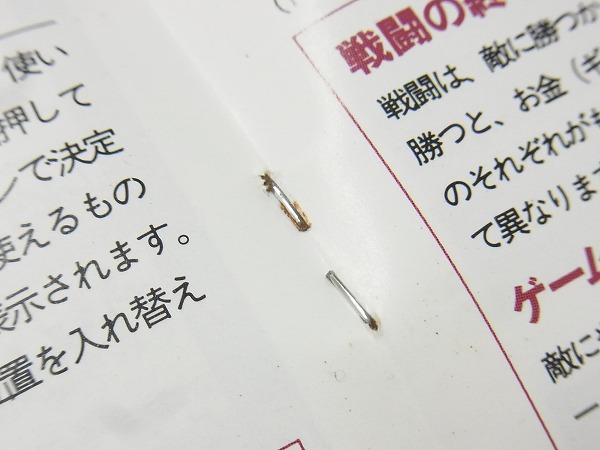 使い
押して
ンで決定
使えるもの
表示されます。
置を入れ替え
戦闘の終
戦闘は、敵に勝つか
勝つと、お金（ギ
のそれぞれがも
て異なります
ゲーム
敵に